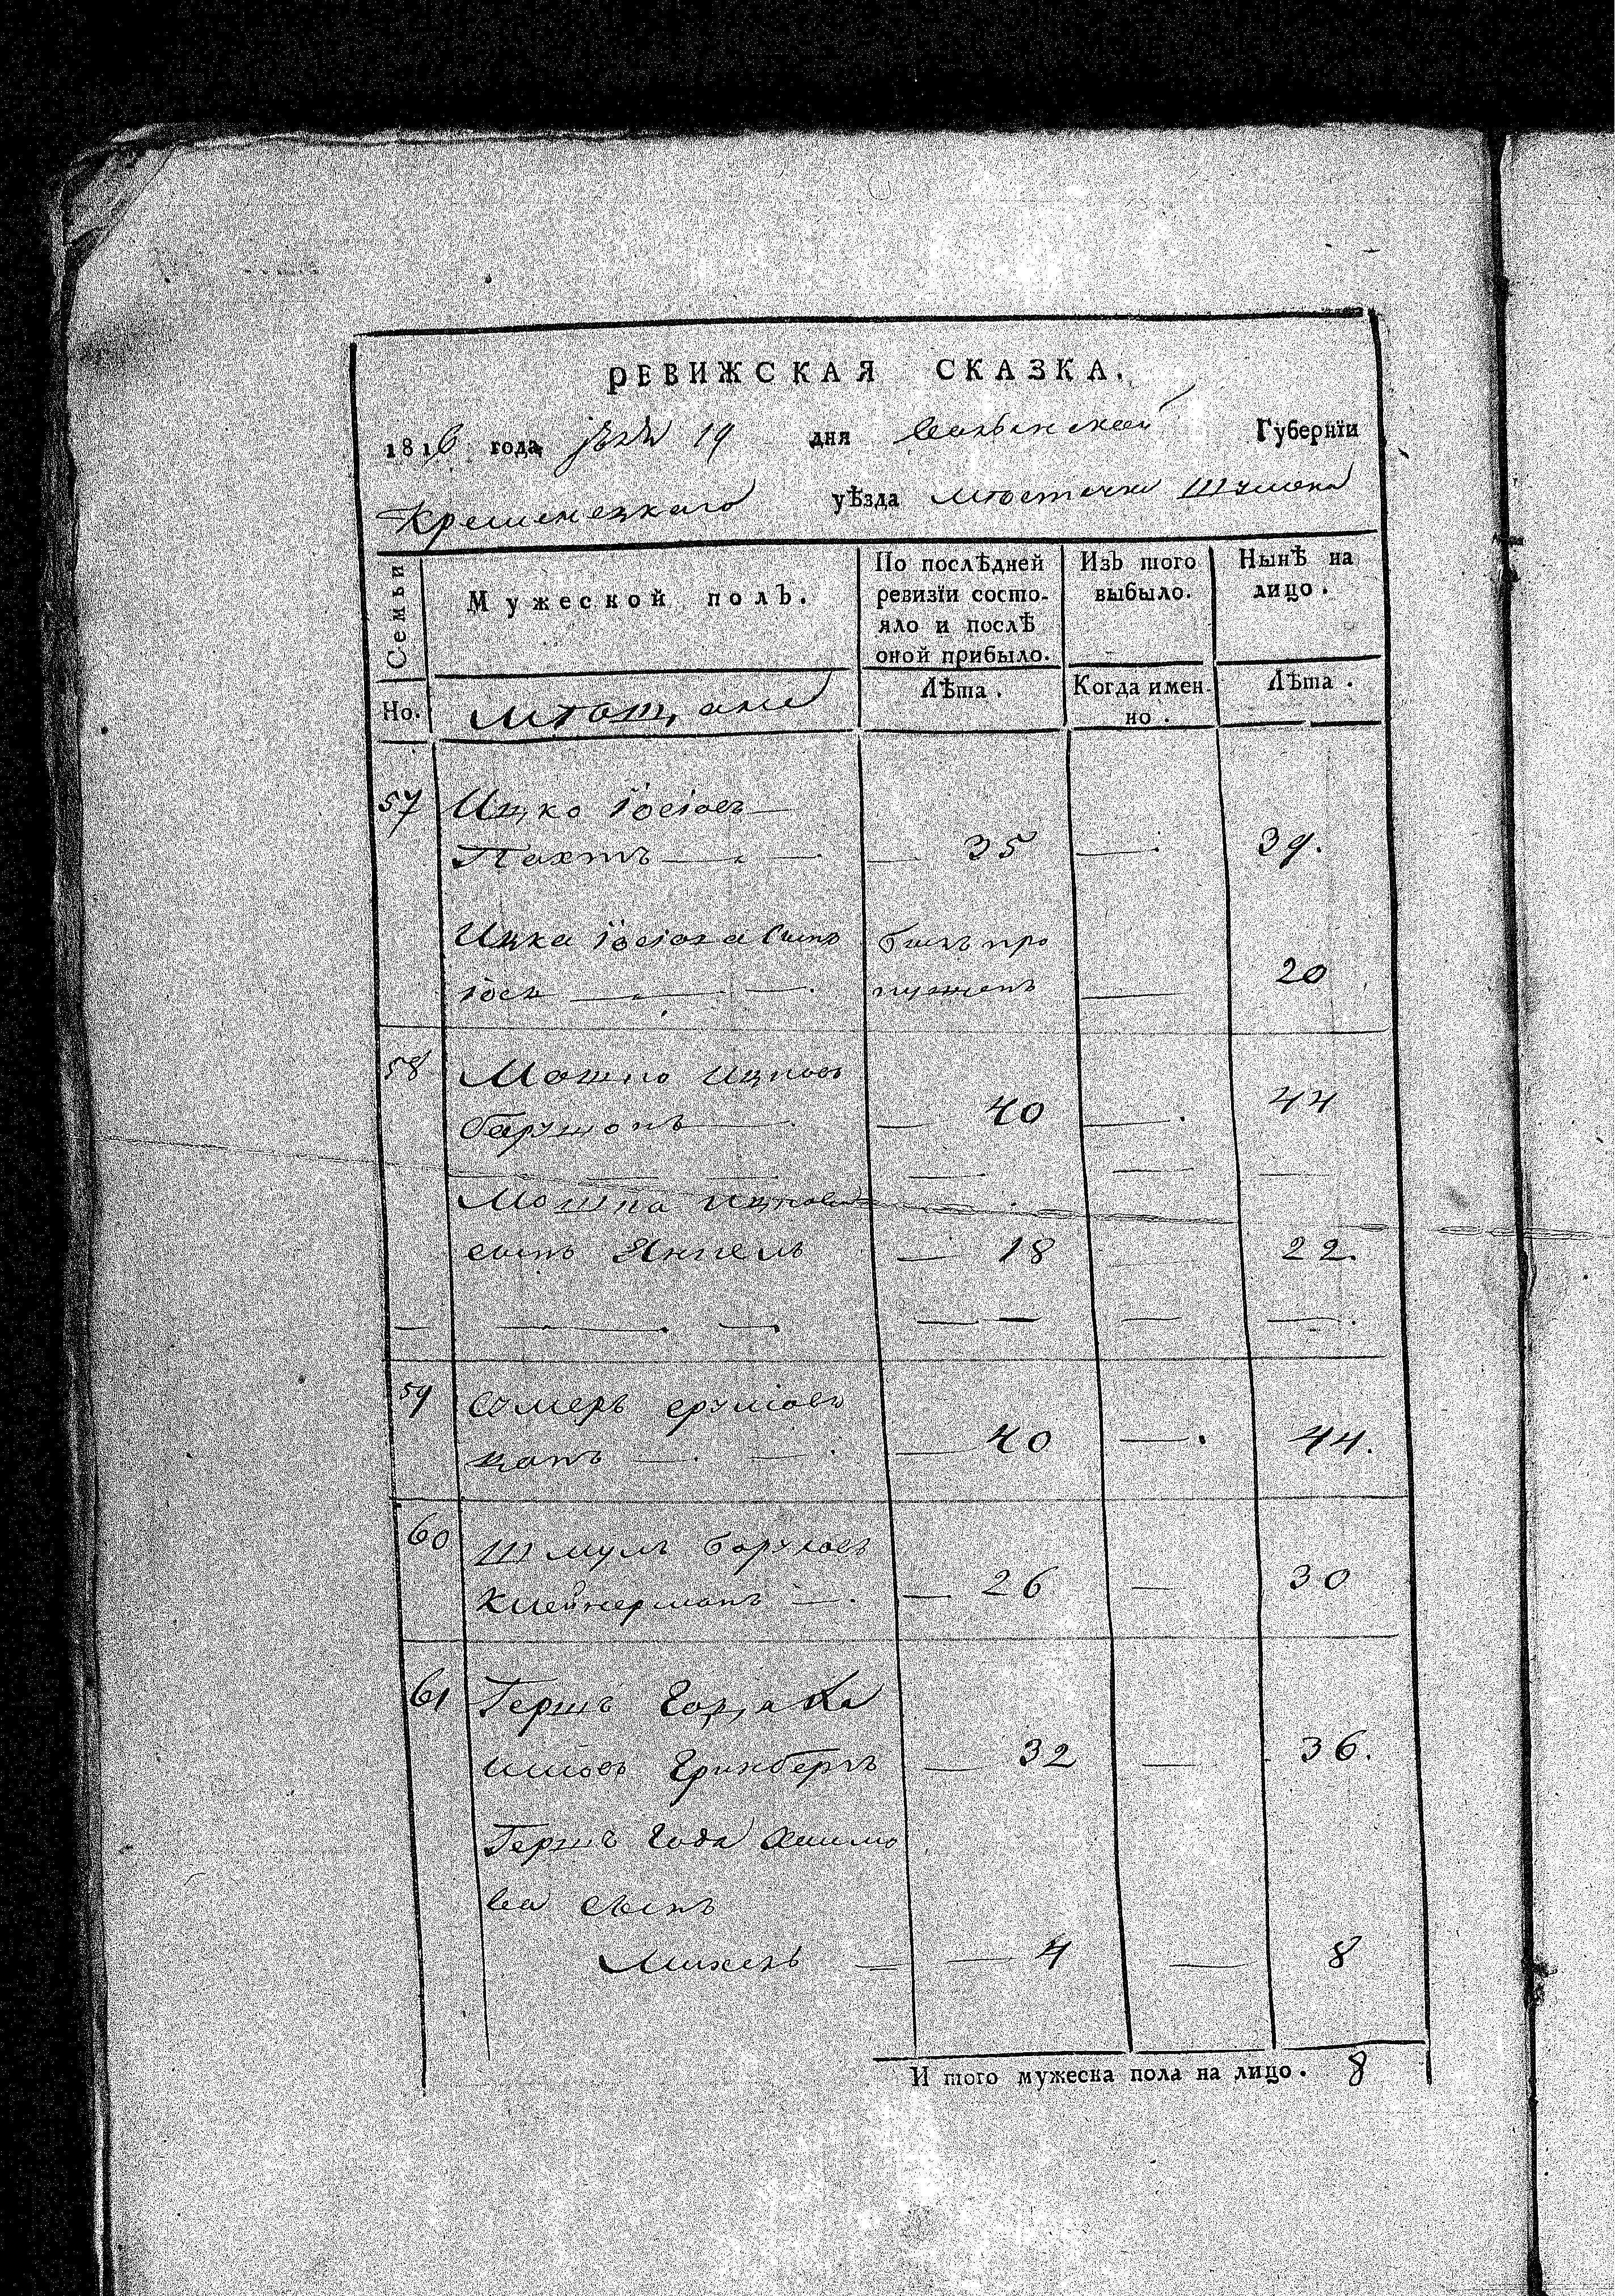 РЕВИЖСКАЯ СКАЗКА.
1816 года 19 дня Волынской Губернїи
Кременецкаго уѣзда местечка Шумска
Семьи
Мужеской полъ.
По послѣдней ревизїи состо-
яло и послѣ
оной прибыло.
Изъ того
выбыло.
Нынѣ на
лицо.
Но.
Мѣщане
Лѣта.
Когда имен-
но.
Лѣта.
57 Ицко Іосіовъ
Пахтъ — 35 — 39.
Ицка Іосіова сынъ былъ про
Іось пущенъ — 20
58 Мошко Ицковъ
— 40 — 44
Мошка Ицкова
сынъ Янкель — 18 22.
59
— 40 — 44.
60 Шмуль Боруховъ
Клейнерманъ — 26 — 30
61 Гершъ
Гринбергъ — 32 — 36.
Гершъ
ва сынъ
Михель — 4 — 8
И того мужеска пола на лицо. 8